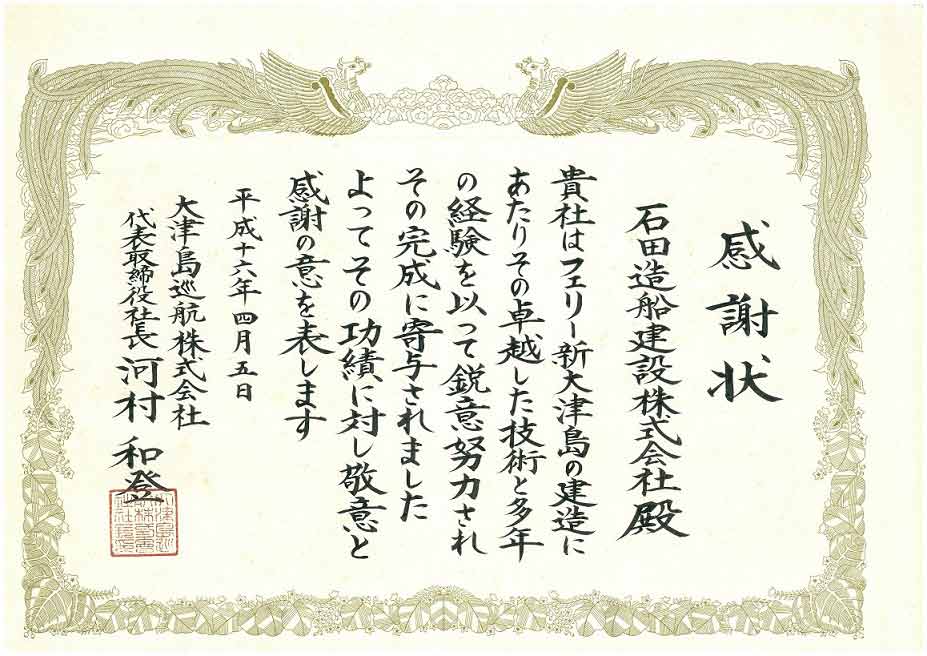 感謝状
石田造船建設株式会社殿
貴社はフェリー新大津島の建造に
あたりその卓越した技術と多年
の経験を以って鋭意努力され
その完成に寄与されました
よってその功績に対し敬意と
感謝の意を表します
平成十六年四月五日
大津島巡航株式会社
代表取締役社長 河村和登